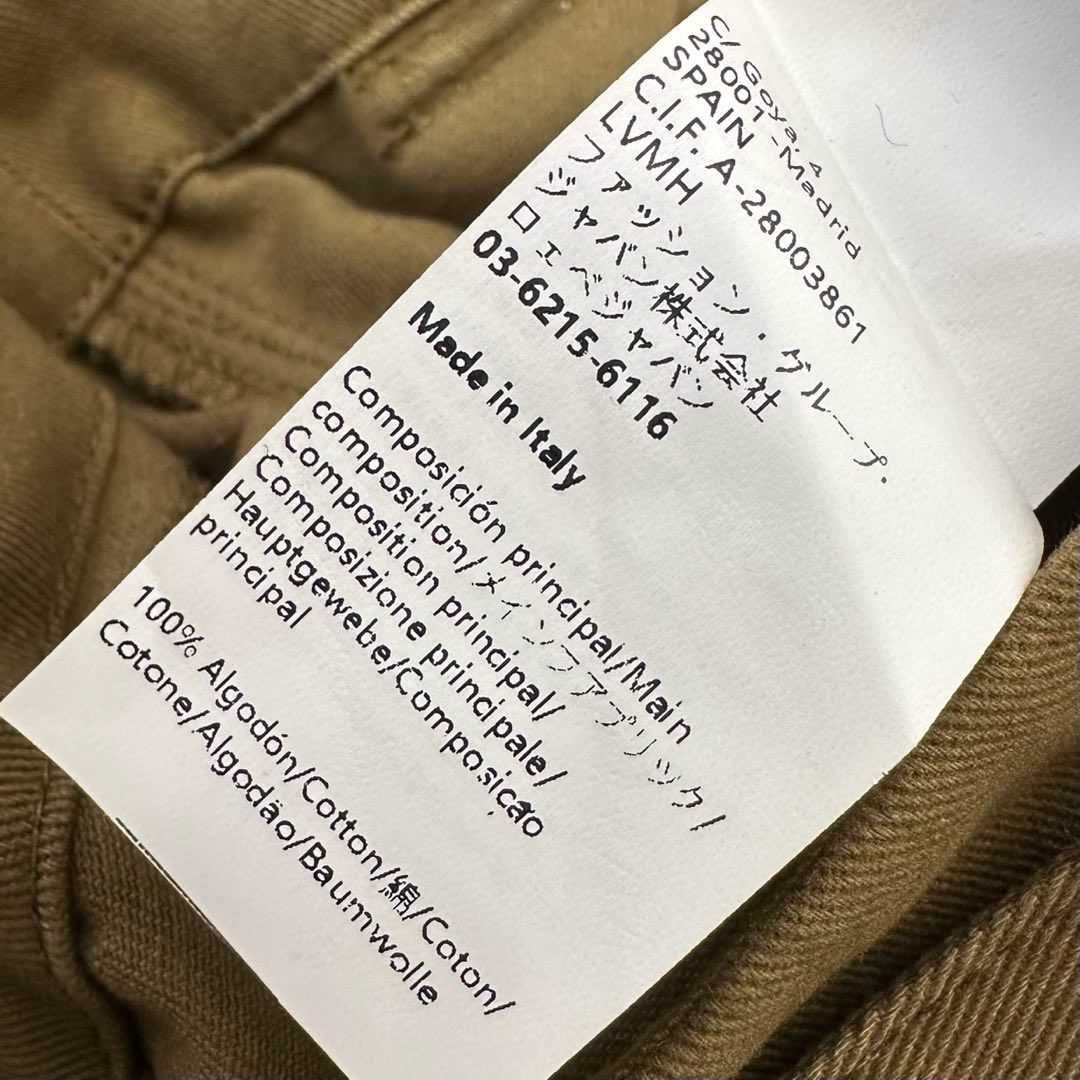 C/ Goya, 4
28001 -Madrid
SPAIN
C.I.F. A-28003861
LVMH
ファッション・グループ・
ジャパン株式会社
ロエベジャパン
03-6215-6116
Made in Italy
Composición principal/Main
composition/メインファブリック/
Composition principal/
Composizione principale/
Hauptgewebe/Composição
principal
100% Algodón/Cotton/綿/Coton/
Cotone/Algodão/Baumwolle